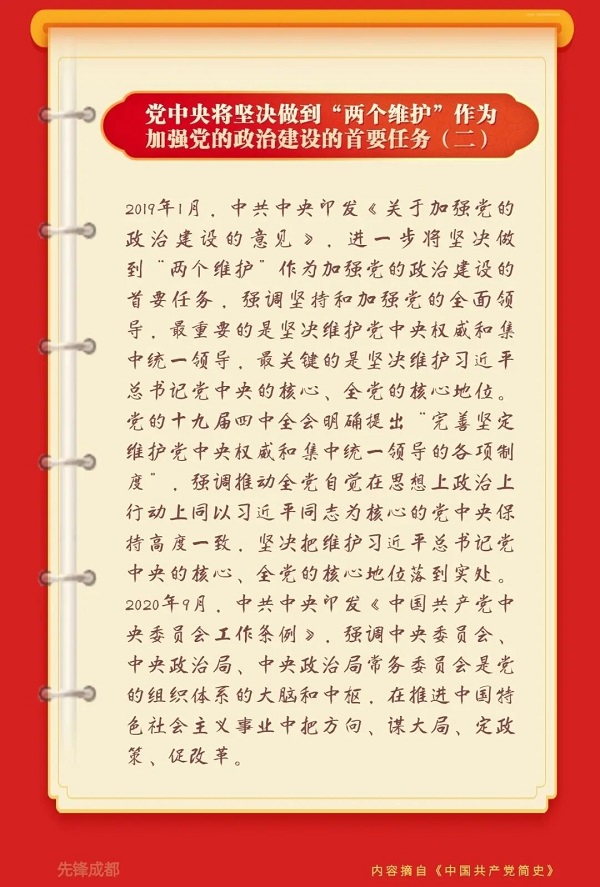 党中央将坚决做到“两个维护”作为
加强党的政治建设的首要任务（二）
2019年1月，中共中央印发《关于加强党的
政治建设的意见》，进一步将坚决做
到“两个维护”作为加强党的政治建设的
首要任务，强调坚持和加强党的全面领
导，最重要的是坚决维护党中央权威和集
中统一领导，最关键的是坚决维护习近平
总书记党中央的核心、全党的核心地位。
党的十九届四中全会明确提出“完善坚定
维护党中央权威和集中统一领导的各项制
度”，强调推动全党自觉在思想上政治上
行动上同以习近平同志为核心的党中央保
持高度一致，坚决把维护习近平总书记党
中央的核心、全党的核心地位落到实处。
2020年9月，中共中央印发《中国共产党中
央委员会工作条例》，强调中央委员会、
中央政治局、中央政治局常务委员会是党
的组织体系的大脑和中枢，在推进中国特
色社会主义事业中把方向、谋大局、定政
策、促改革。
先锋成都
内容摘自《中国共产党简史》